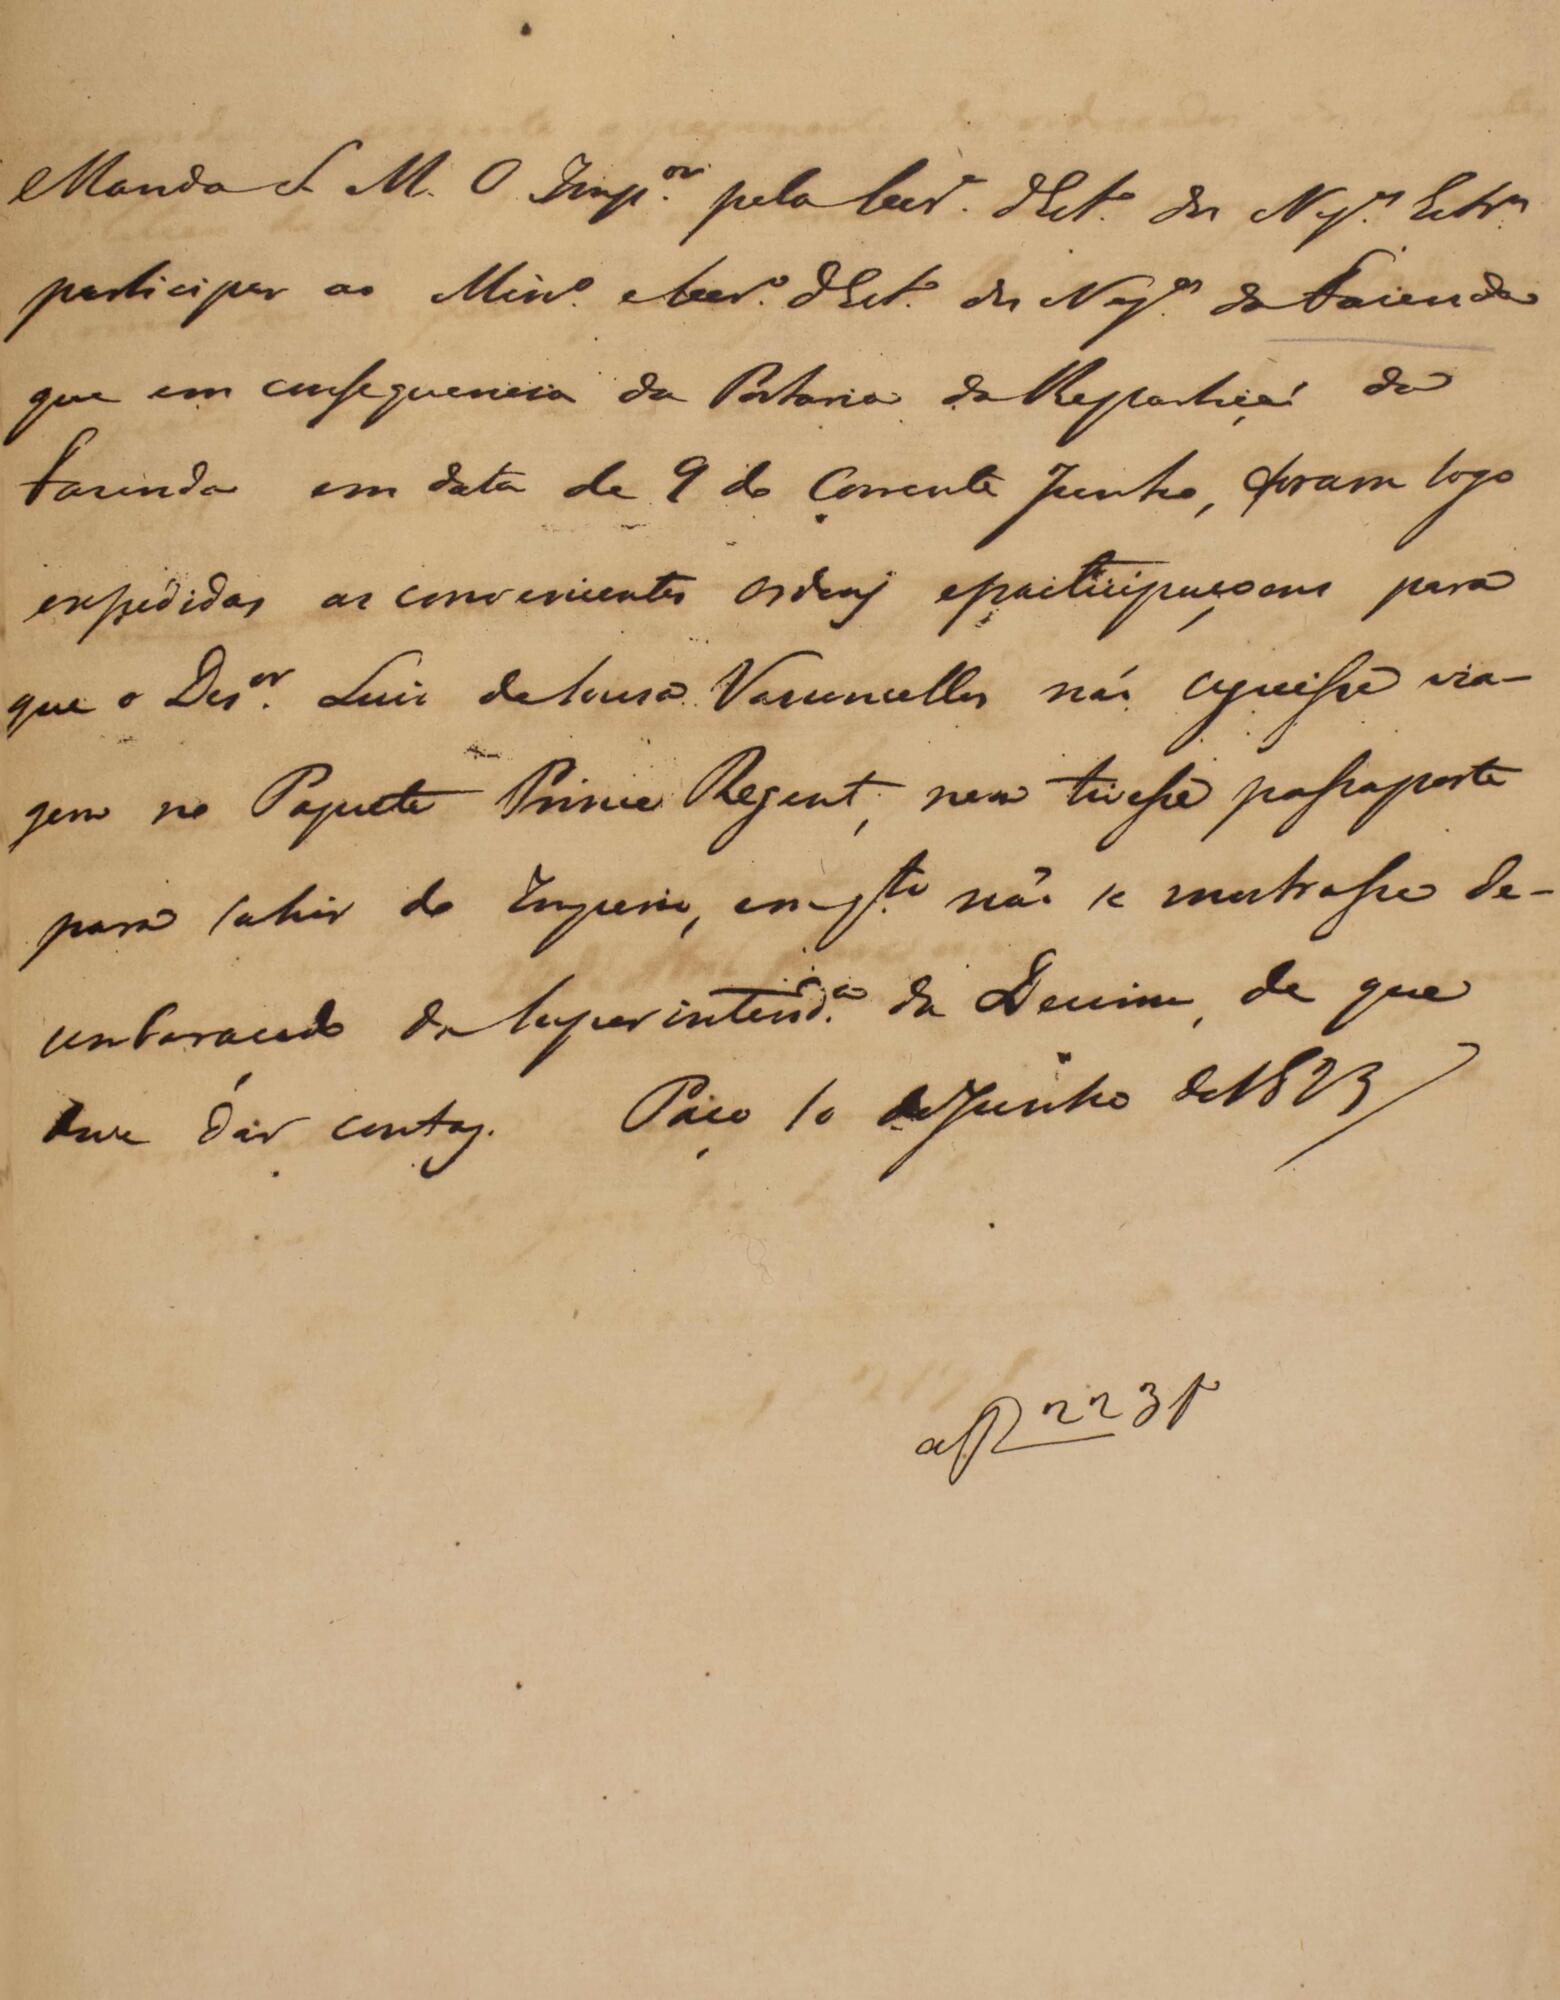 Manda S. M. O Imp.or pela Secr.a d'Est.o dos Neg.os Estr.os
participar ao Min.o e Secr.o d'Est.o dos Neg.os da Fazenda
que em consequencia da Portaria da Repartiçaõ da
Fazenda em data de 9 do Corrente Junho, foram logo
expedidas as convenientes ordens e participaçoens para
que o Des.or Luis de Sousa Vasconcellos naõ seguisse via-
gem no Paquete Prince Regent, nem tivesse passaporte
para sahir do Imperio, emq.to naõ se mostrasse de-
sembaraçado da Superintend.a da Decima, de que
deve dár contas. Paço 10 de Junho de 1823